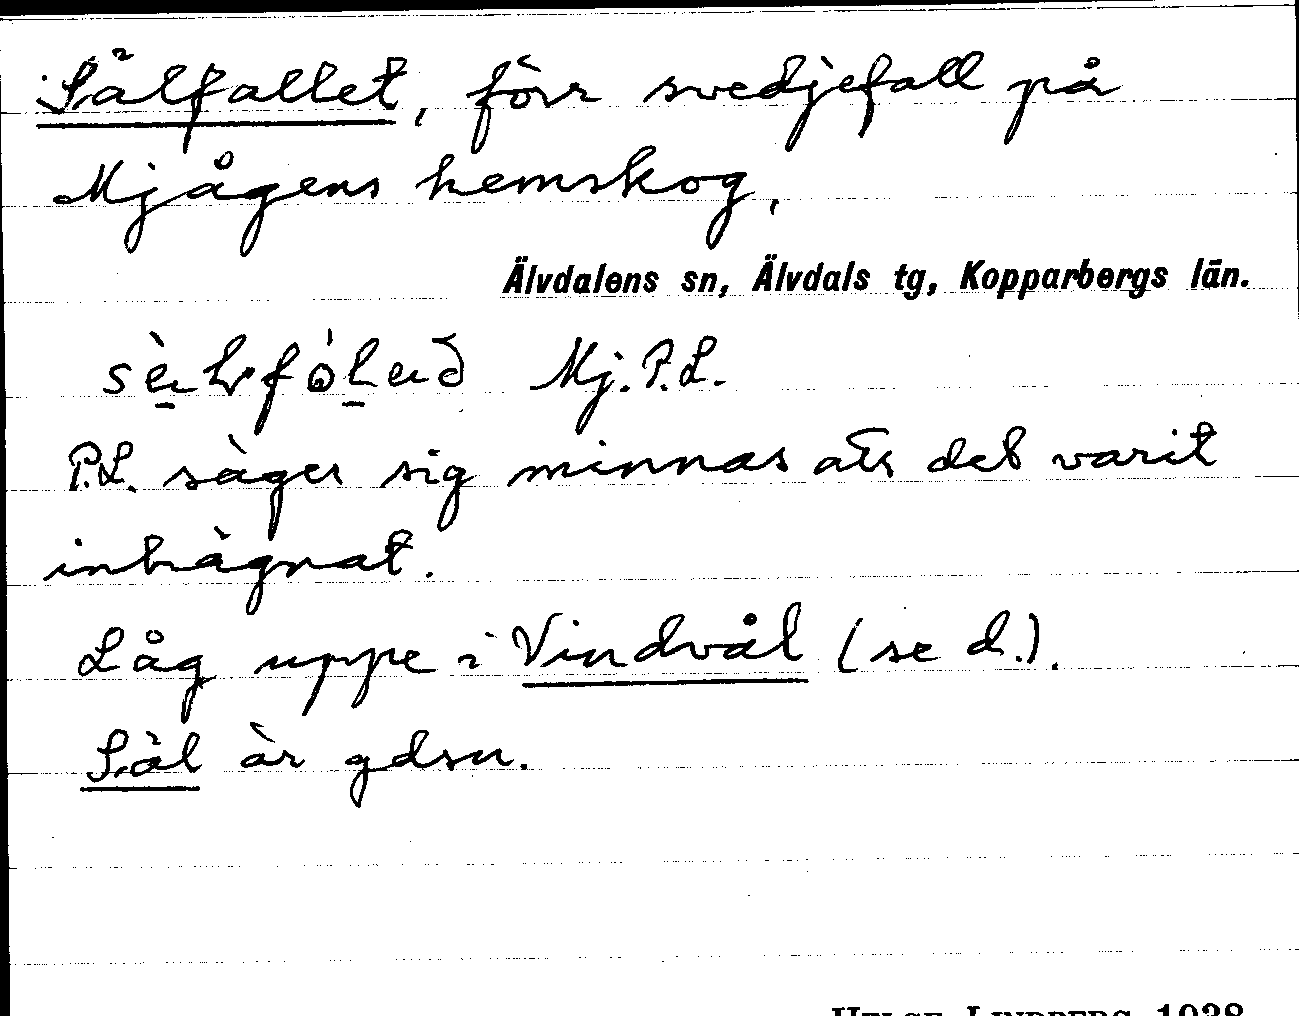 Sälfallet, förr svedjefall på
Mjågens hemskog,
Älvdalens sn, Älvdals tg, Kopparbergs län.
Mj. P.L.
P.L. säger sig minnas att det varit
inhägnat.
Låg uppe i Vindvål (se d.).
Säl är gdsn.
HELGE LINDBERG 1938